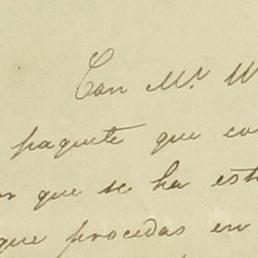 Con Mr. W
paquete que co
or que se ha est
que procedas en